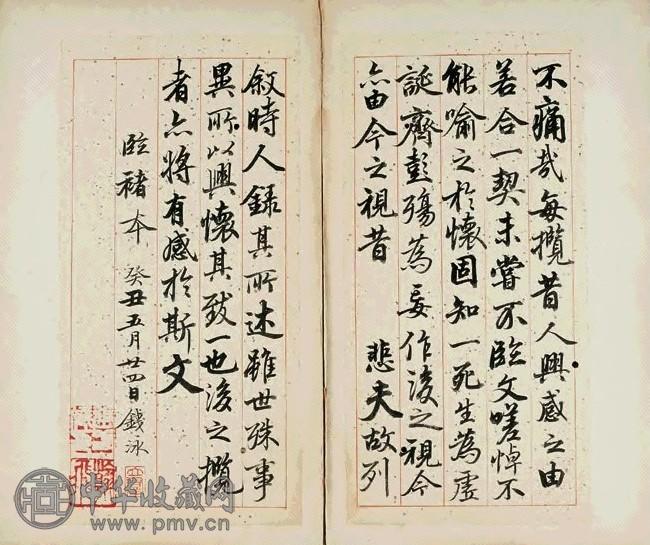 不痛哉每攬昔人興感之由
若合一契未嘗不臨文嗟悼不
能喻之於懷固知一死生為虛
誕齊彭殤為妄作後之視今
亦由今之視昔 悲夫故列
敘時人錄其所述雖世殊事
異所以興懷其致一也後之攬
者亦將有感於斯文
臨褚本 癸丑五月廿四日 錢泳
中华收藏网
www.pmv.cn